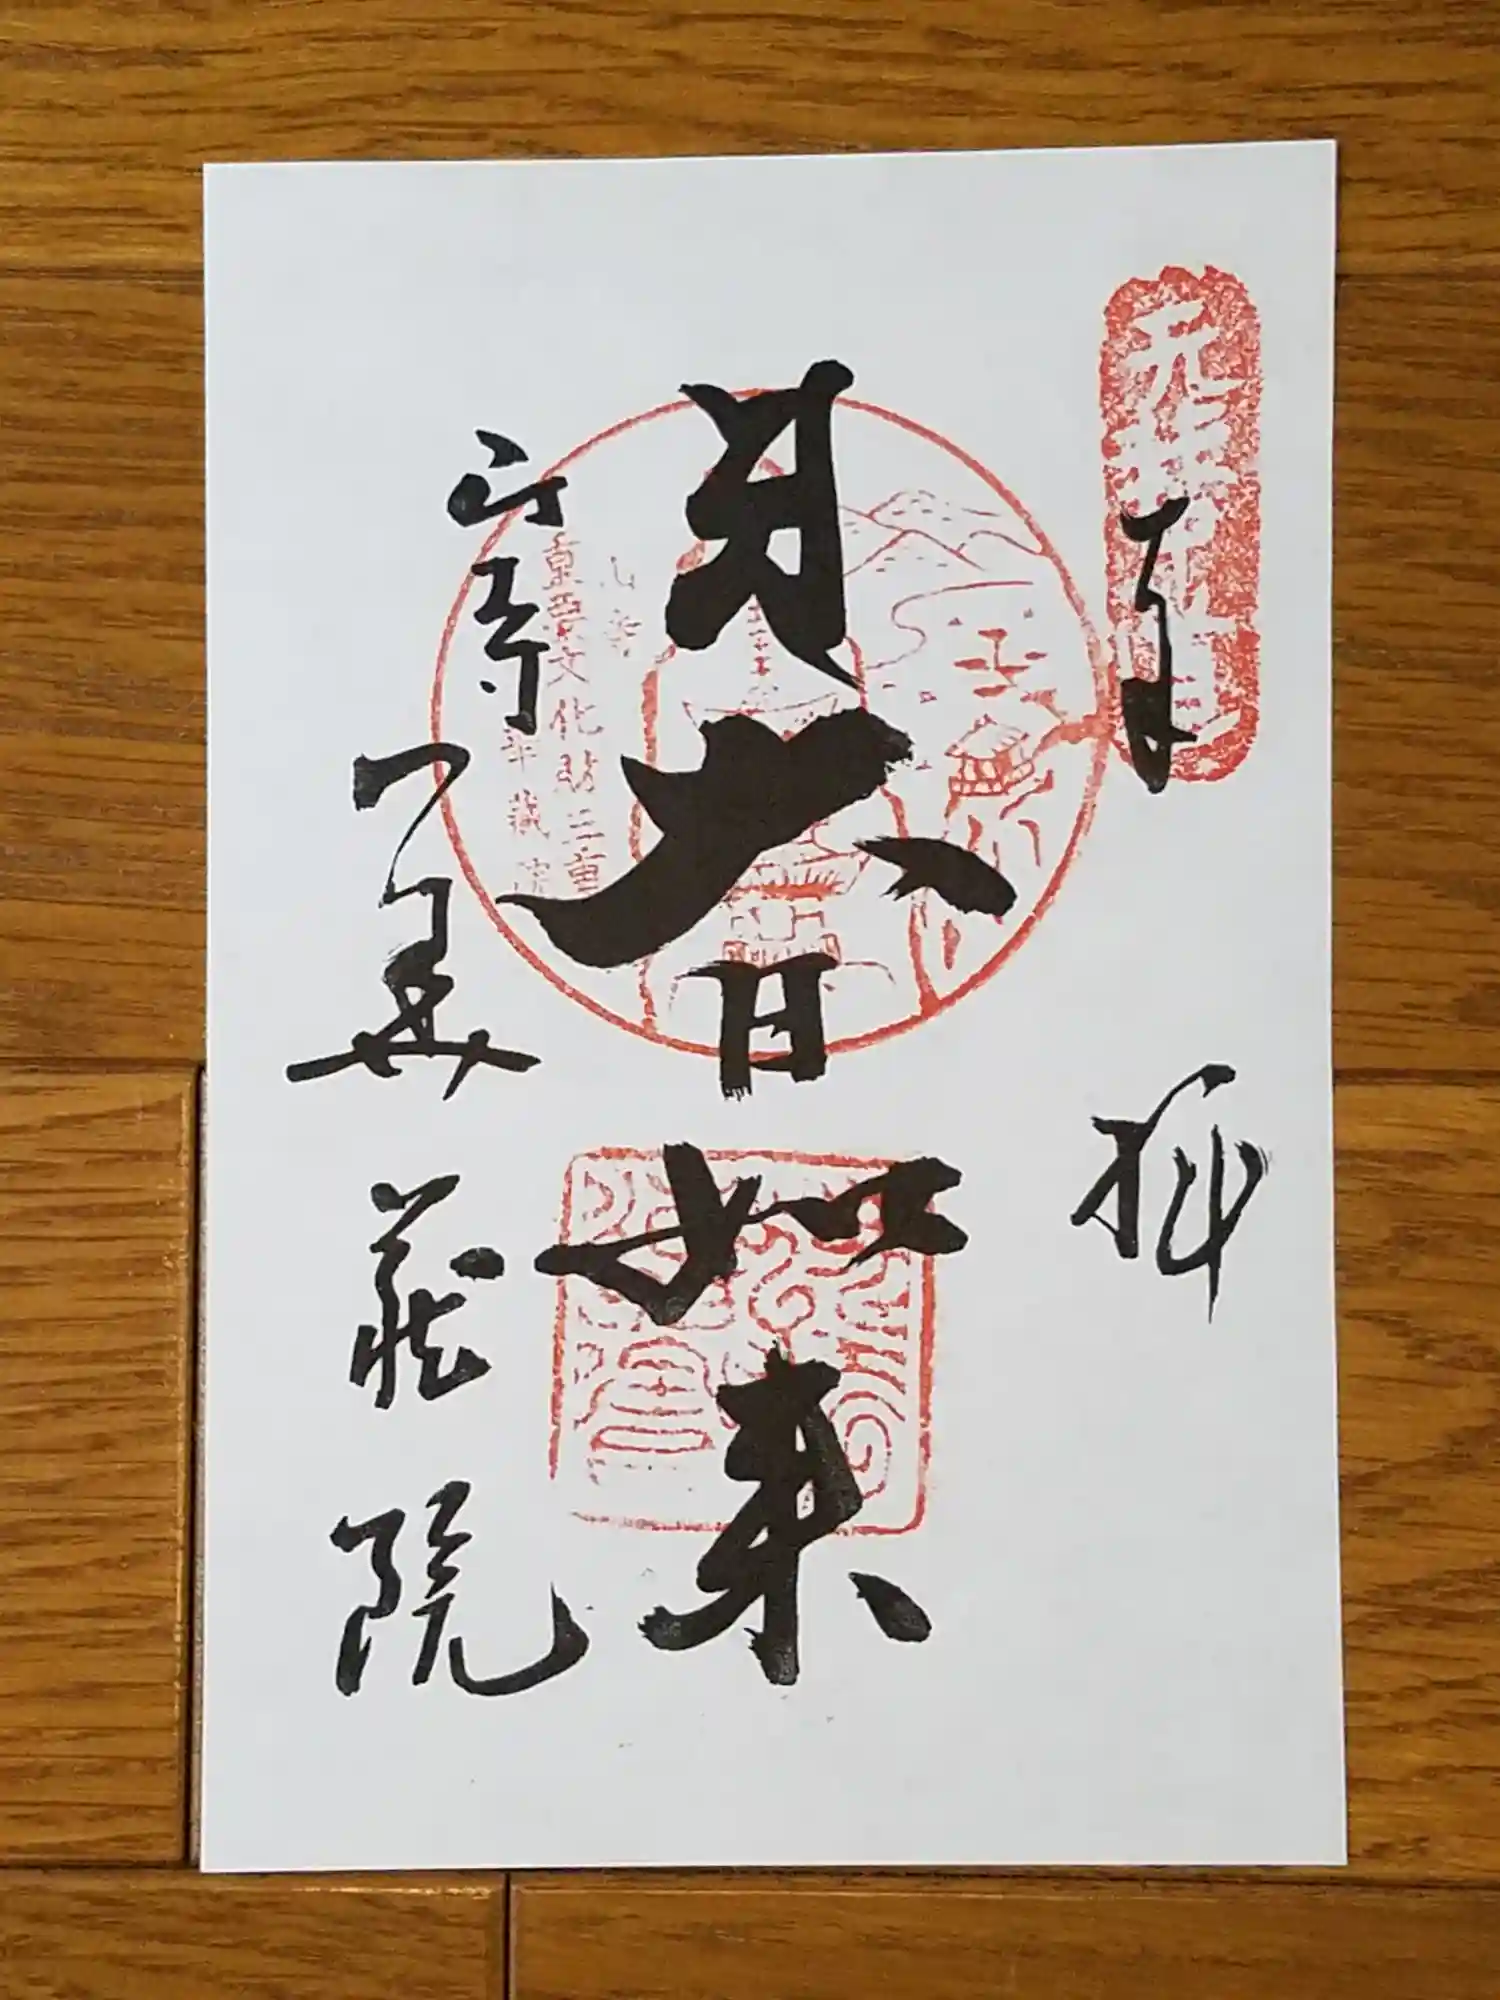 奉拝
大日如来
山寺
華蔵院
山寺
重要文化財三重
華蔵院